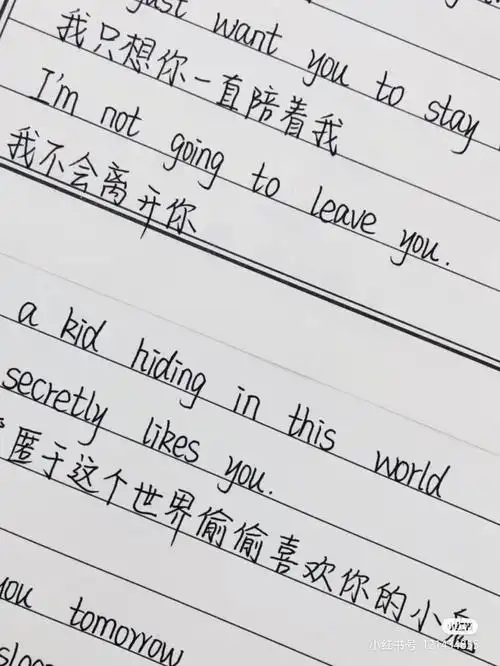 just want you to stay
我只想你一直陪着我
I'm not going to leave you.
我不会离开你
a kid hiding in this world
secretly likes you.
匿于这个世界偷偷喜欢你的小
you tomorrow
小红书
小红书号